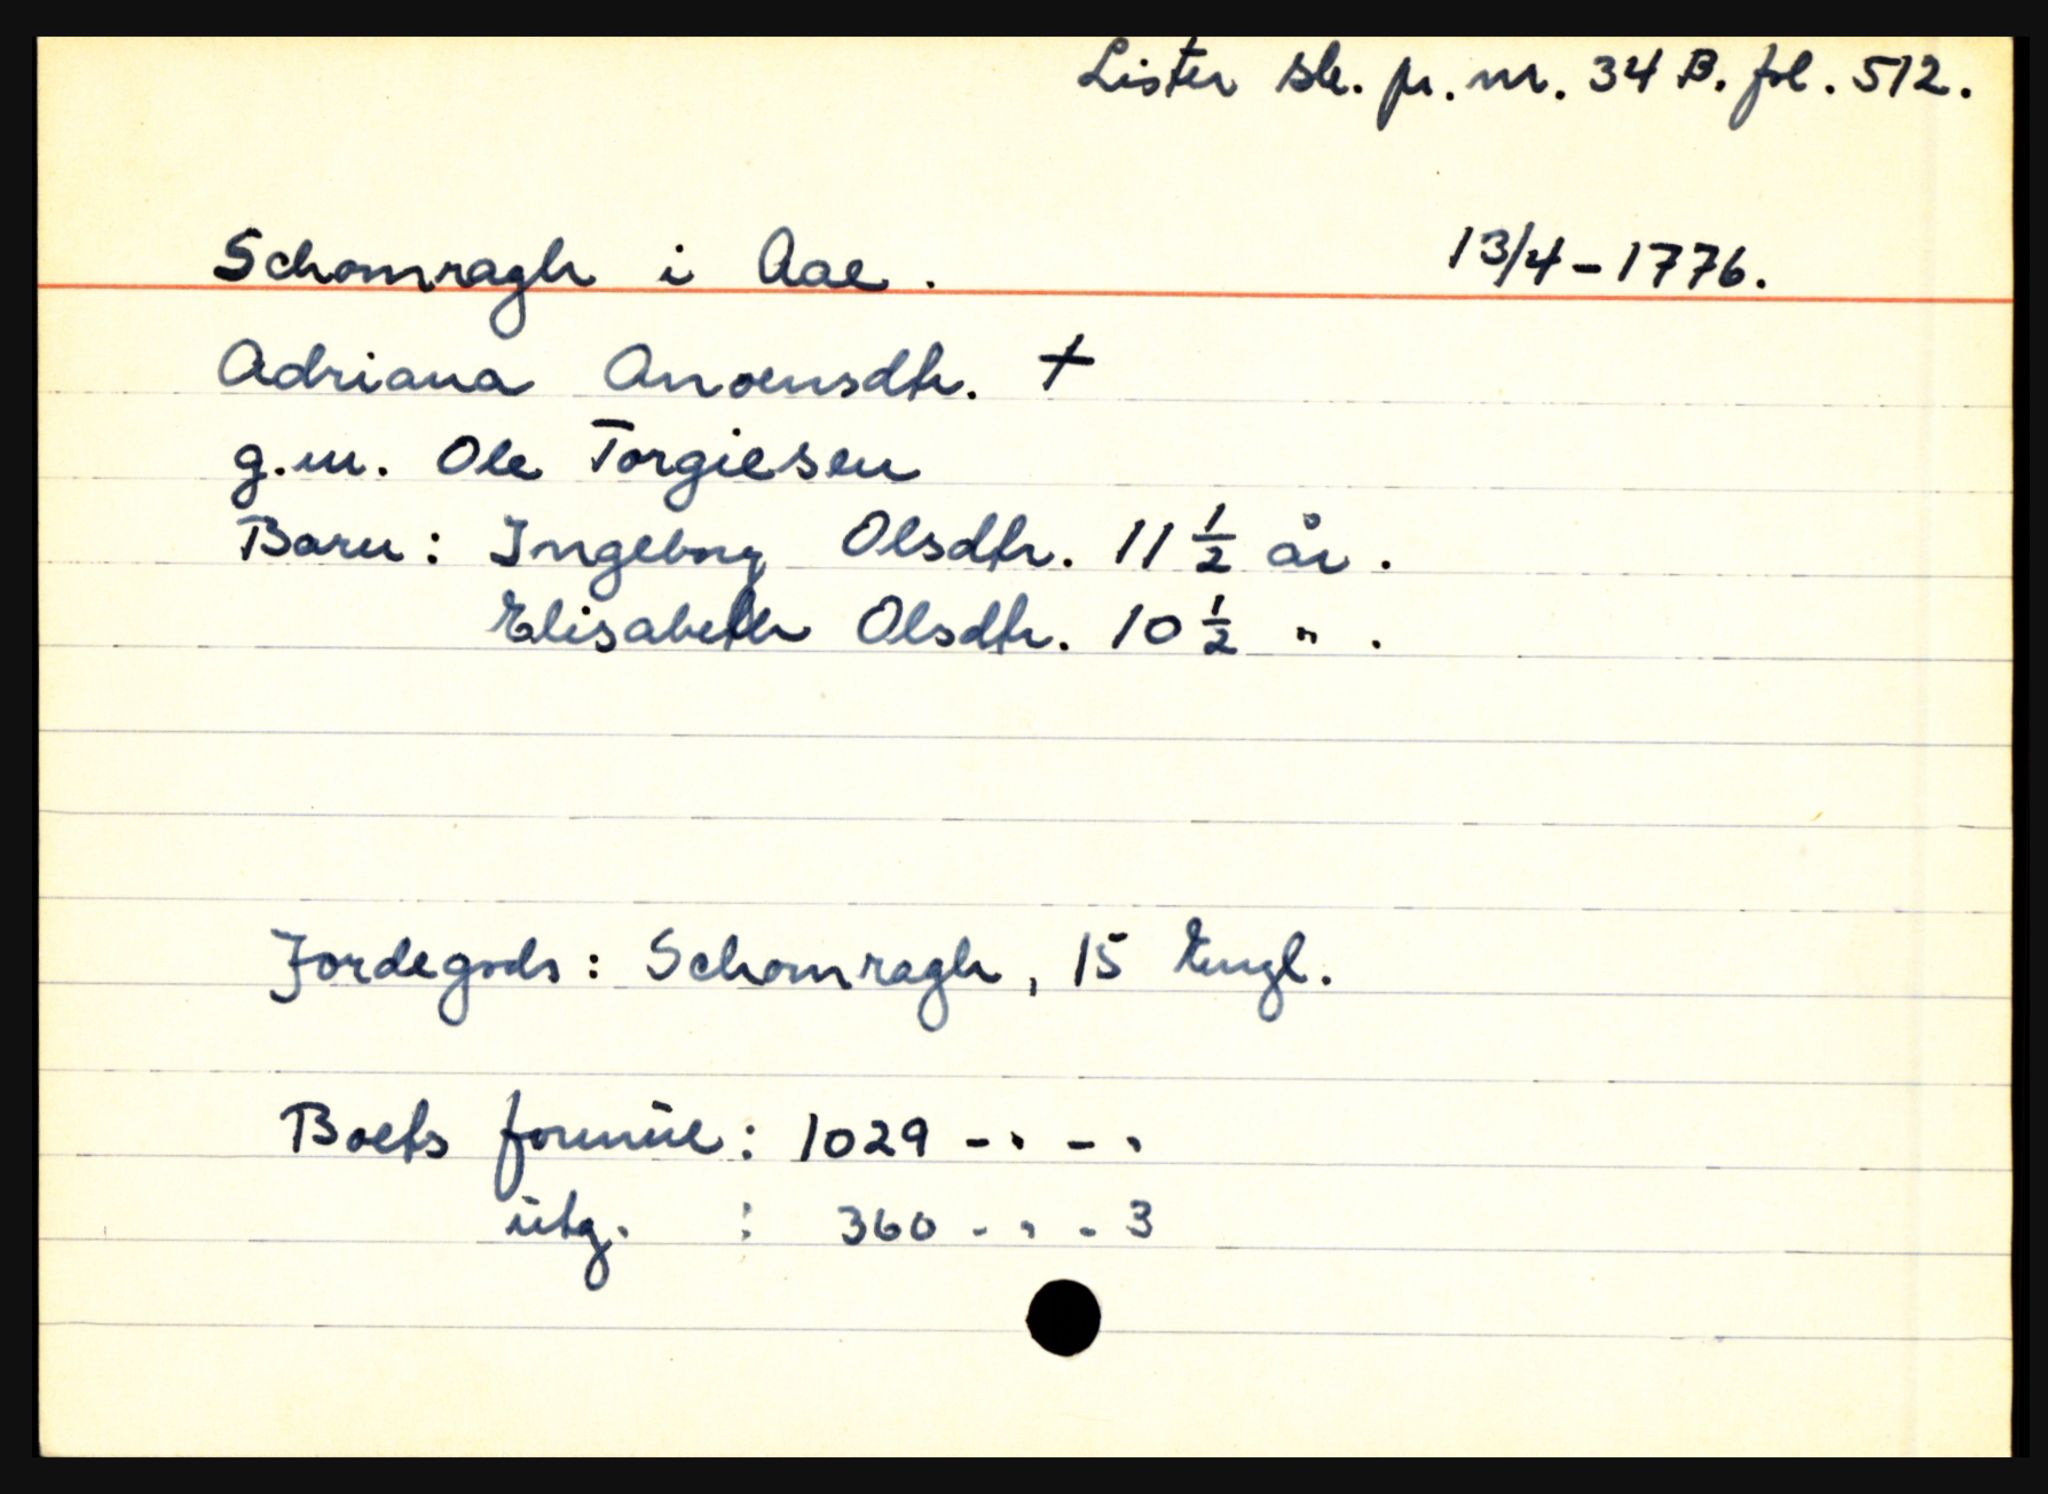 Lister sk. pr. nr. 34 B. fol. 512.
Schomragh i Aae. 13/4-1776.
Adriana Anoensdtr. +
g.m. Ole Torgiesen
Barn: Ingeborg Olsdtr. 11 1/2 år.
Elisabeth Olsdtr. 10 1/2 " .
Jordegods: Schomragh, 15 Engl.
Boets formue: 1029 - " - "
utg. : 360 - " - 3